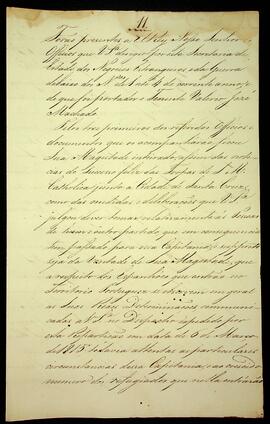 11
Forão presentes a El Rey Nosso Senhor os
Officios que V. Sª dirigio por esta Secretaria de
Estado dos Negocios Estrangeiros e da Guerra
debaixo dos Nos 1 a 4 do corrente anno, e de
que foi portador o Tenente Valerio José
Machado
Pelos tres primeiros dos referidos Officios e
documentos que os acompanharão ficou
Sua Magestade inteirado, assim das noti-
cias do Successo feliz das Tropas de S. M.
Catholica junto a Cidade de Santa Cruz,
como das medidas, e deliberações que V. Sª
julgou dever tomar relativamente
de hum e outro partido que em consequencia
tem passado para essa Capitania; e supposto
seja da Vontade de Sua Magestade, que
a respeito dos Espanhoes que entrão no
Territorio Portuguez se observem em geral
as Suas Reaes Determinações communi-
cadas a V. Sª no Despacho expedido por
esta Repartição em data de 6 de Março
de 1815 todavia attentas as particulares
circunstancias dessa Capitania, e ao crescido
numero dos refugiados que nella entrarão